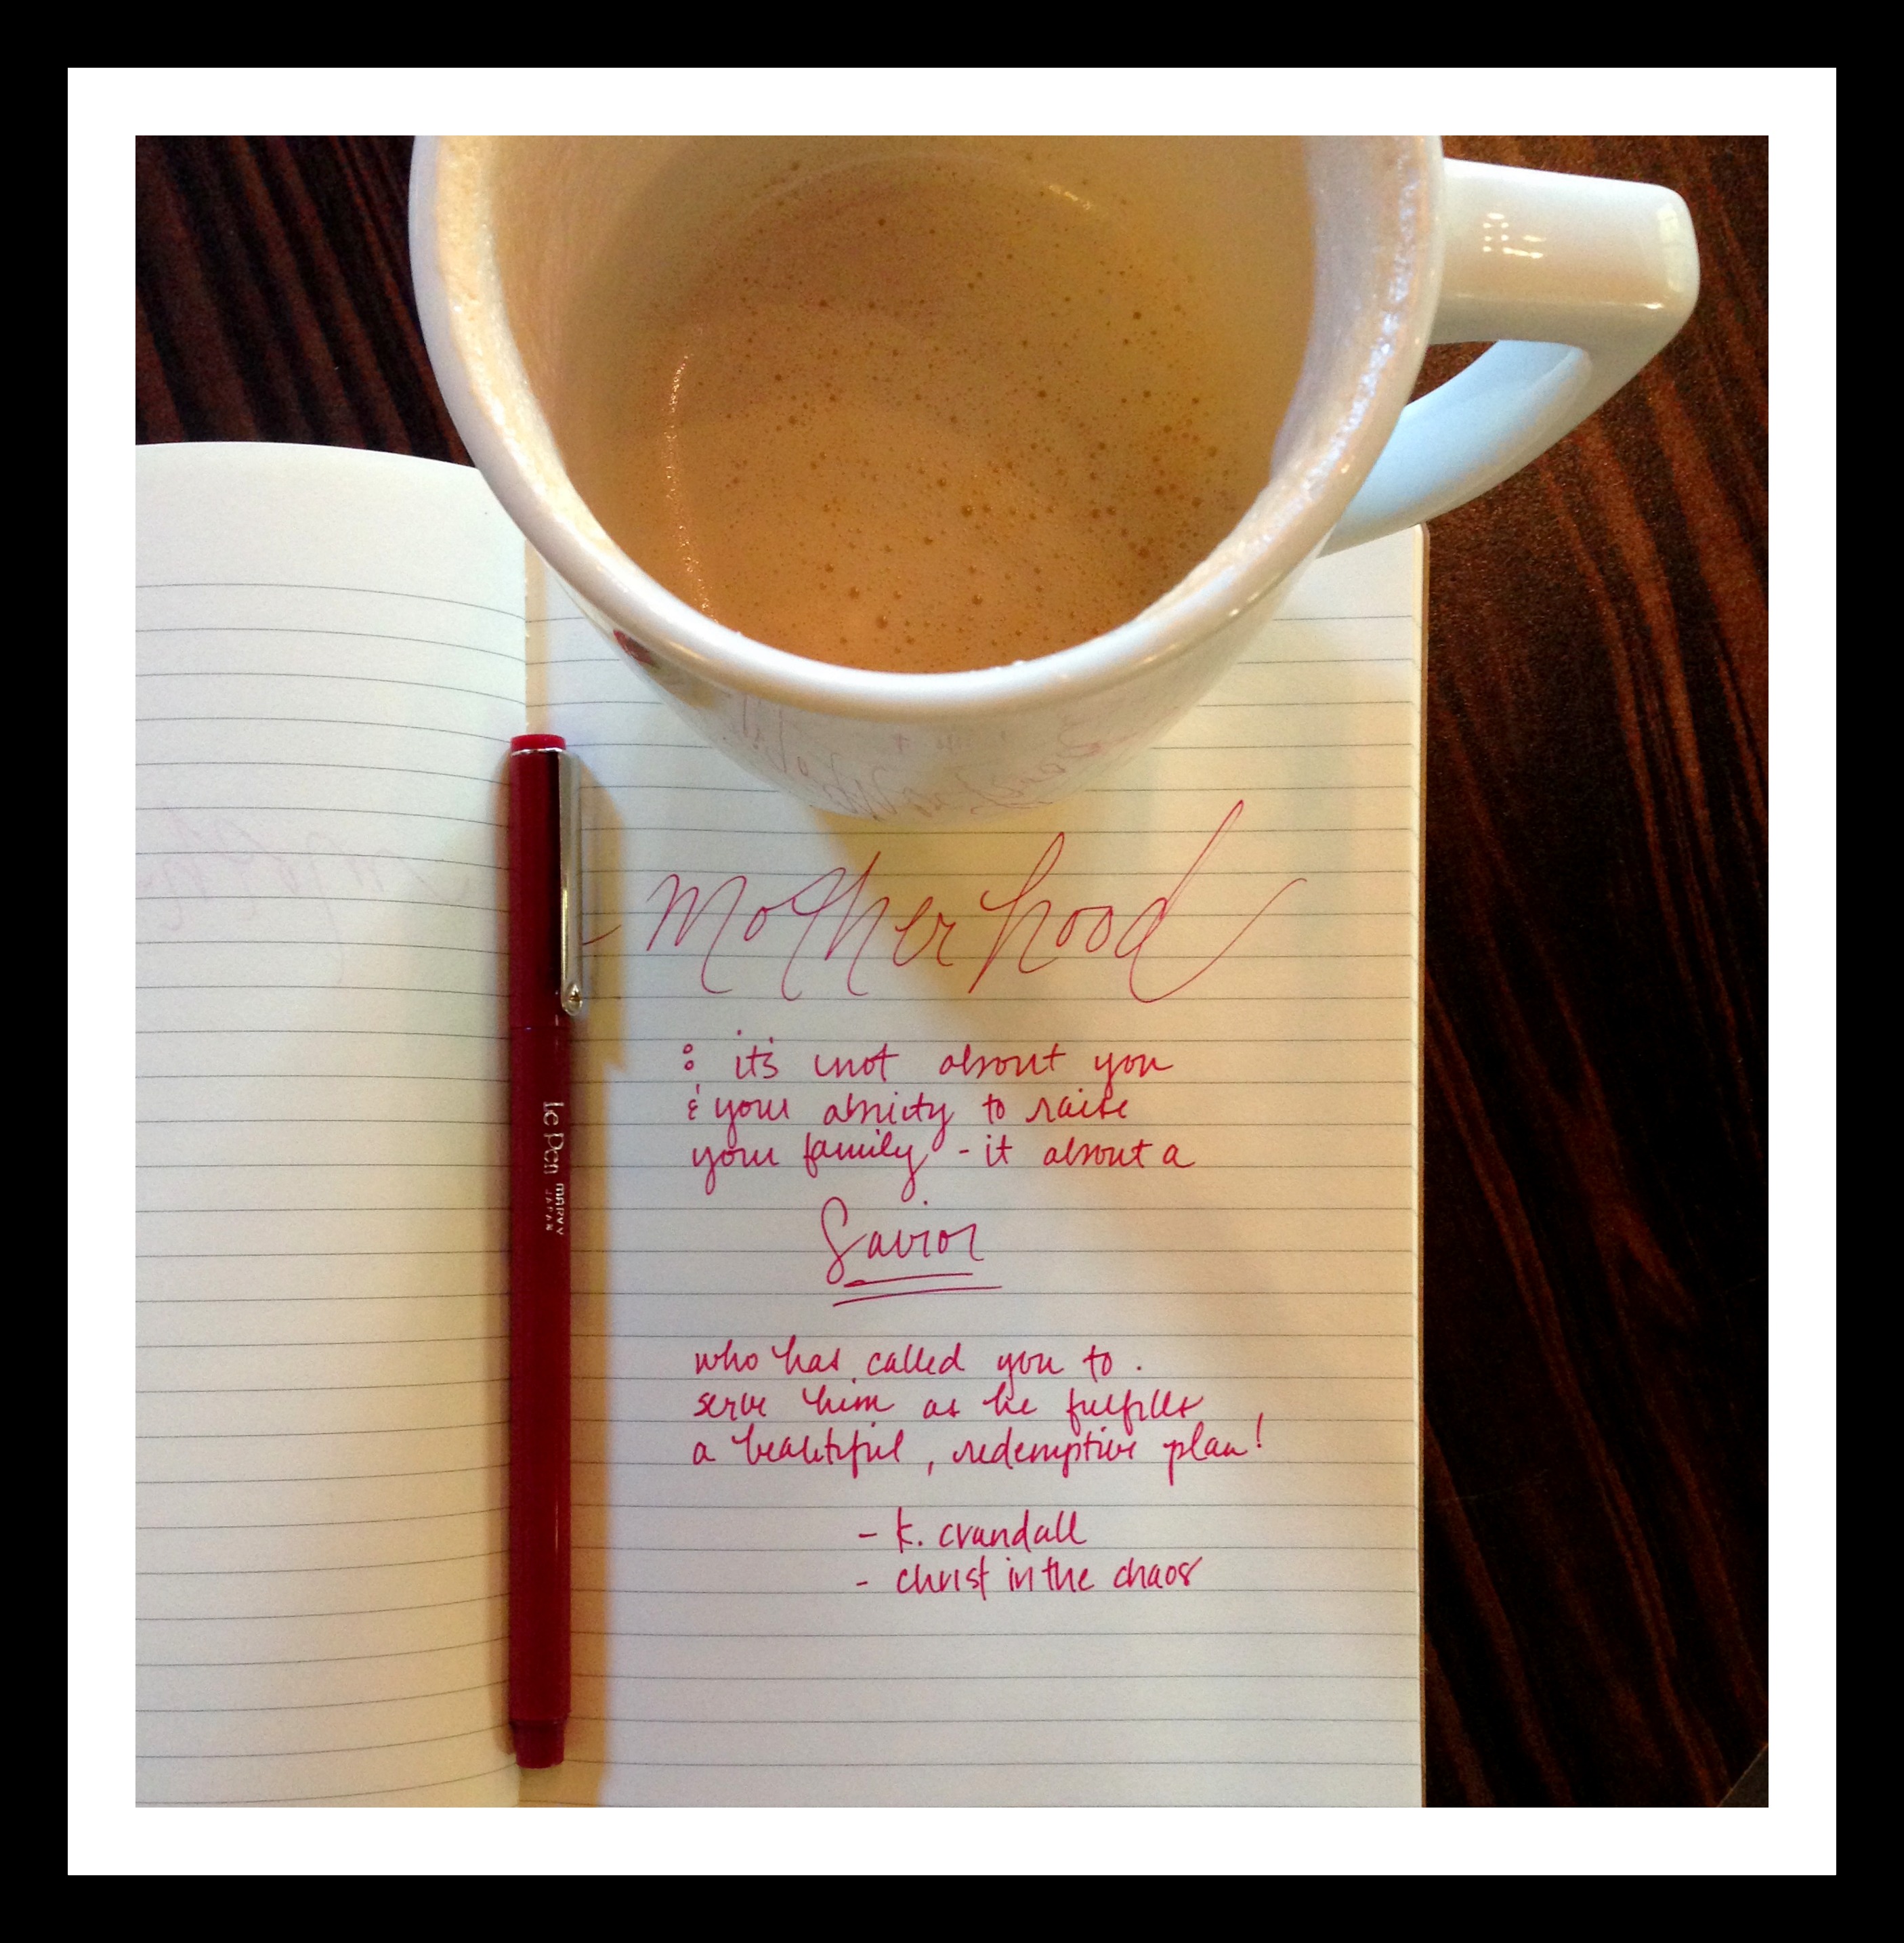 motherhood
: it's not about you
& your ability to raise
your family - it about a
Savior
who has called you to.
serve him as he fulfills
a beautiful, redemptive plan!
- k. crandall
- christ in the chaos
Le Pen MARVY
JAPAN